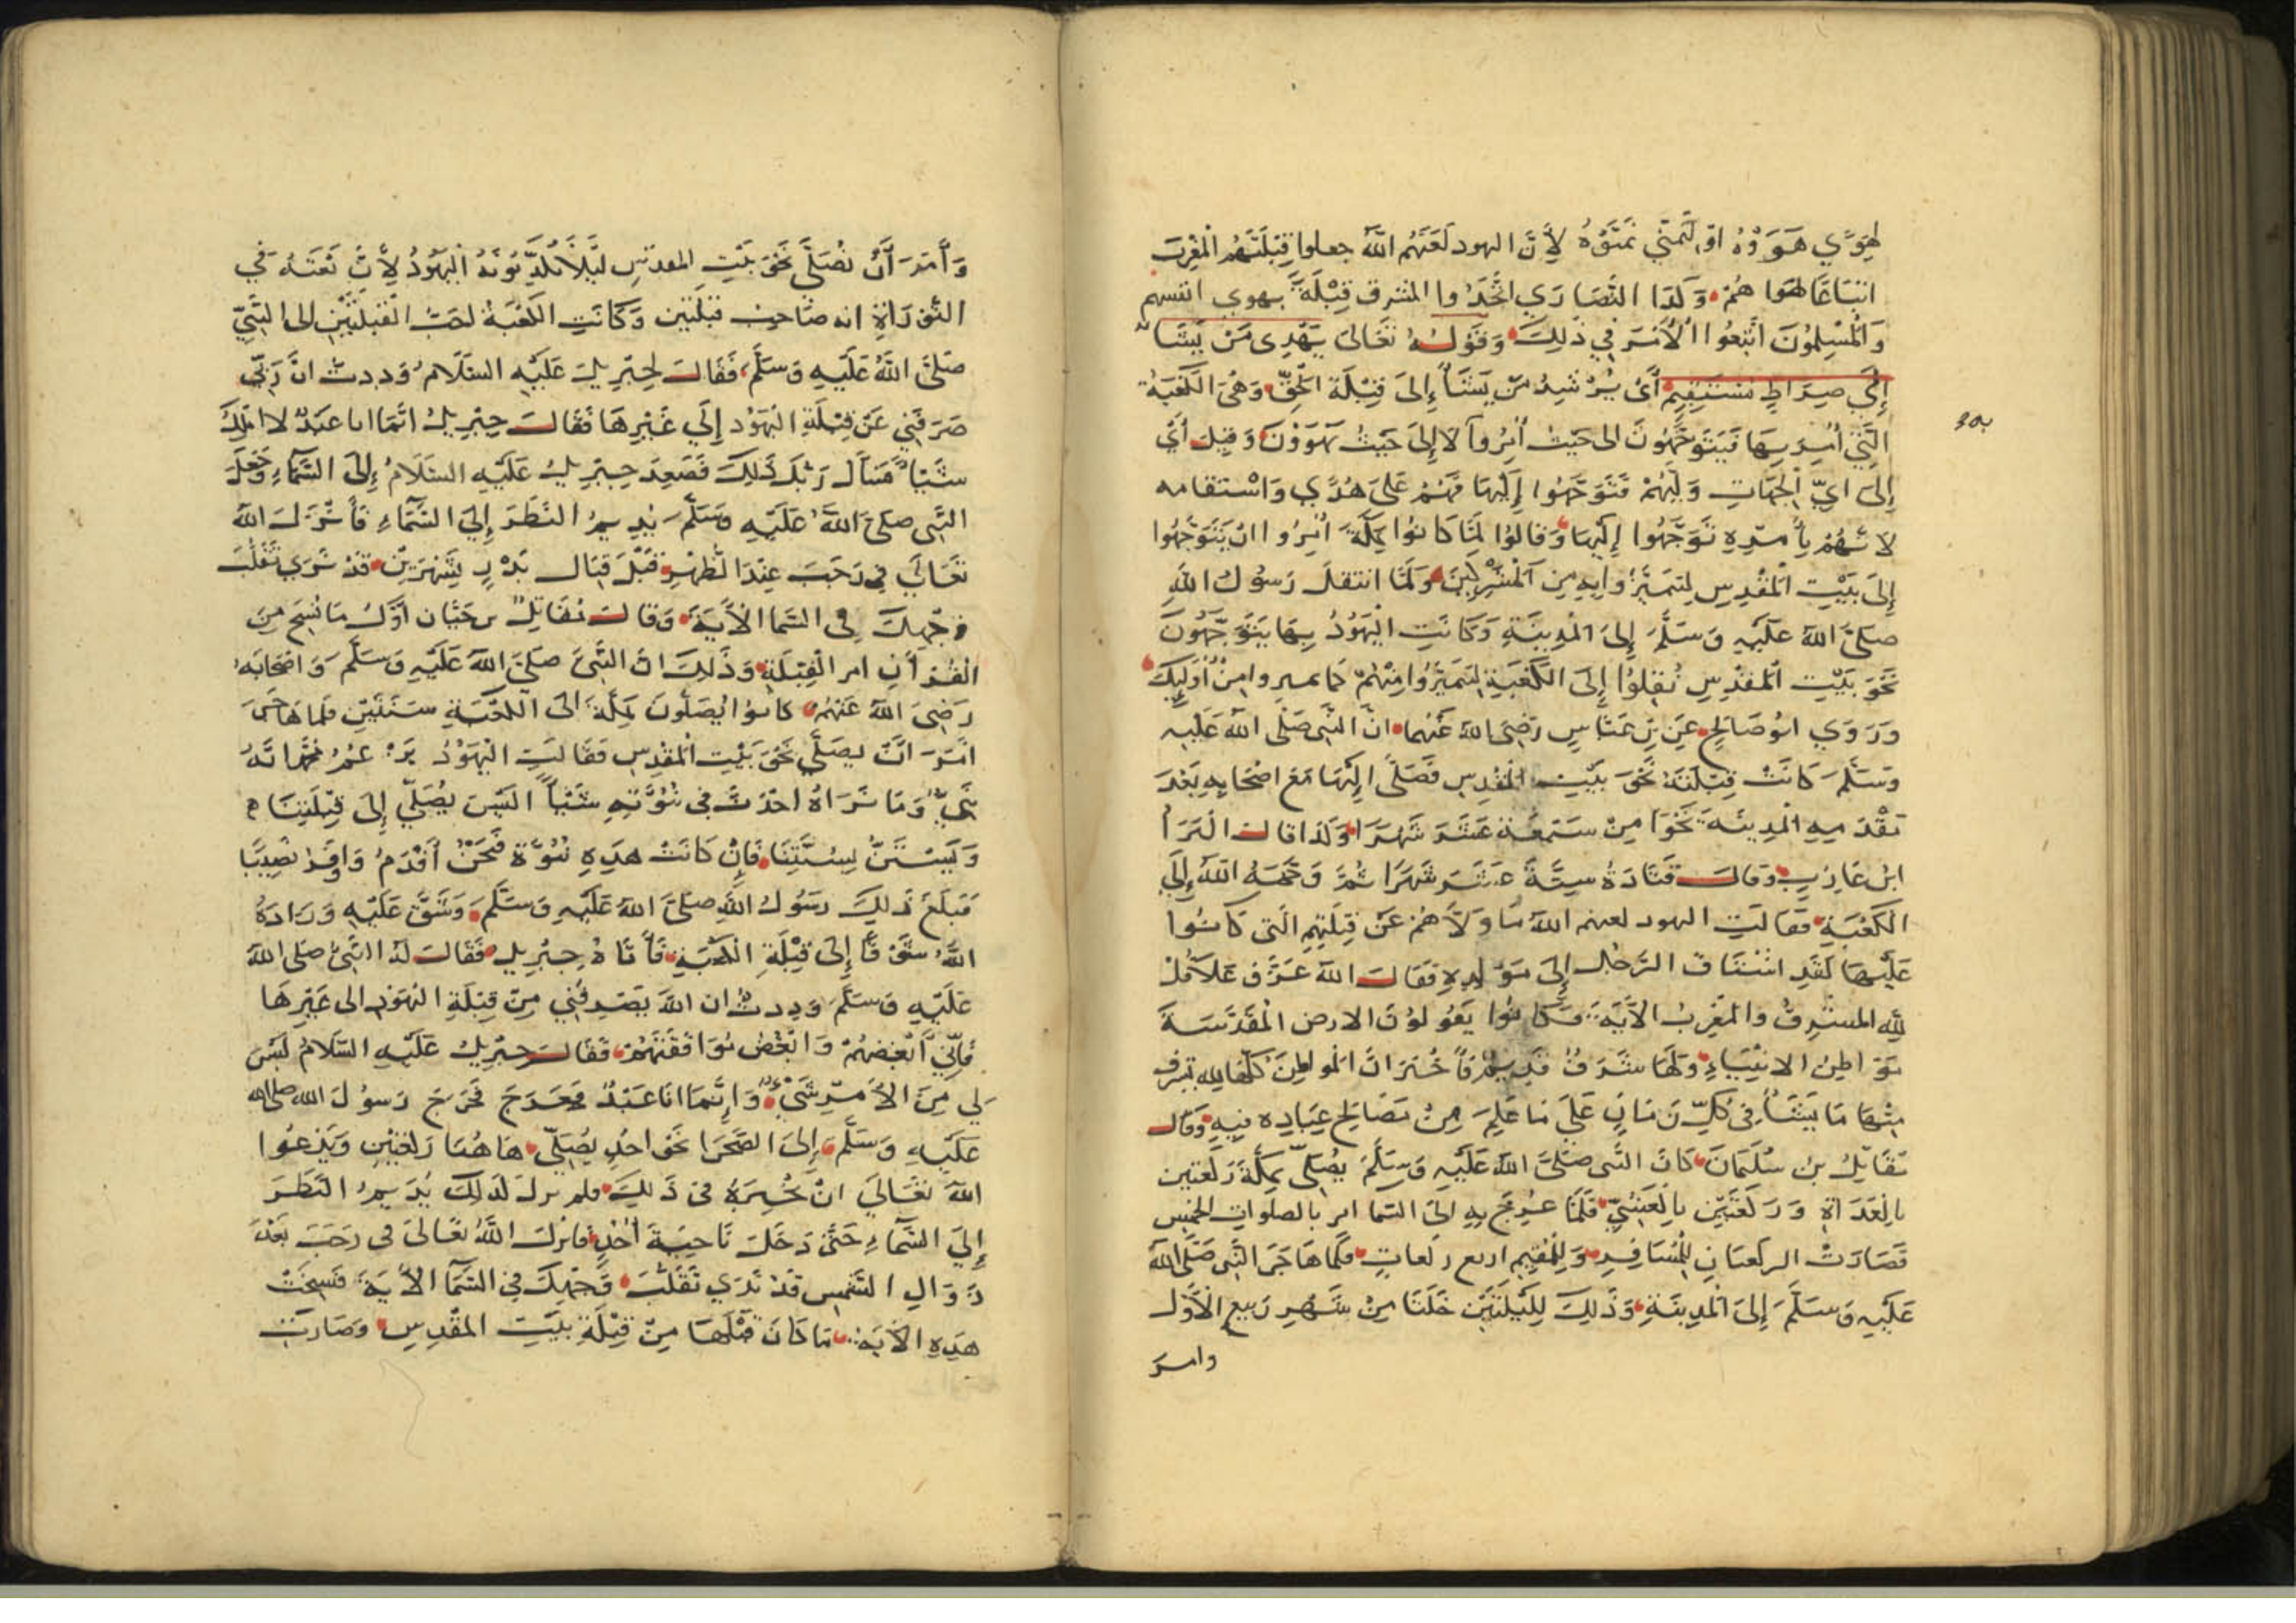 لهوى هووه او لتمني تمنوه لأن اليهود لعنهم الله جعلوا قبلتهم المغرب
اتباعا لهواهم وكذا النصارى اتخذوا المشرق قبلة بهوى انفسهم
والمسلمون اتبعوا الأمر في ذلك وقوله تعالى يهدى من يشاء
إلى صراط مستقيم أى يرشد من يشاء إلى قبلة الحق وهى الكعبة
التي أمر بها فيتوجهون الى حيث أمروا لا إلى حيث يهوون وقيل أى
إلى اي الجهات وليهم فتوجهوا إليها فهم على هدى واستقامه
لأنهم بأمره توجهوا إليها وقالوا لما كانوا بمكة أمروا ان يتوجهوا
إلى بيت المقدس ليتميزوا به من المشركين ولما انتقل رسول الله
صلى الله عليه وسلم إلى المدينة وكانت اليهود بها يتوجهون
نحو بيت المقدس نقلوا إلى الكعبة ليتميزوا منهم كما تميروا من أوليك
وروي ابو صالح عن بن عباس رضى الله عنهما ان النبى صلى الله عليه
وسلم كانت قبلته نحو بيت المقدس فصلى إليها مع اصحابه بعد
مقدمه المدينة نحوا من سبعة عشر شهرا وكذا قال البراء
ابن عازب وقال قتادة ستة عشر شهرا ثم وجهه الله إلى
الكعبة فقالت اليهود لعنهم الله ما ولاهم عن قبلتهم التى كانوا
عليها لقد اشتاق الرجل إلى مولده فقال الله عز وعلا قل
لله المشرق والمغرب الآية وكانوا يقولون الارض المقدسة
مواطن الانبياء ولها شرف قديم فأخبر ان المواطن كلها لله تشرف
منها ما يشاء في كل زمان على ما علم من مصالح عباده فيه وقال
مقاتل بن سليمان كان النبى صلى الله عليه وسلم يصلى بمكة ركعتين
بالغداة وركعتين بالعشي فلما عرج به الى السما امر بالصلوات الخمس
فصارت الركعتان للمسافر وللمقيم اربع ركعات فلما هاجر النبى صلى الله
عليه وسلم إلى المدينة وذلك لليلتين خلتا من شهر ربيع الأول
وامر
وأمر أن يصلى نحو بيت المقدس ليلا يكذبونه اليهود لأن نعته في
التوراة انه صاحب قبلتين وكانت الكعبة احب القبلتين الى النبي
صلى الله عليه وسلم فقال لجبريل عليه السلام وددت ان ربى
صرفني عن قبلة اليهود إلي غيرها فقال جبريل انما انا عبد لا املك
شيئا فسأل ربك ذلك فصعد جبريل عليه السلام إلى السماء وجعل
النبى صلى الله عليه وسلم يديم النظر إلى السماء فأنزل الله
تعالى في رجب عند الظهر قبل قتال بدر بشهرين قد نرى تقلب
وجهك فى السما الآية وقال مقاتل بن حيان أول ما نسخ من
القرآن امر القبلة وذلك ان النبى صلى الله عليه وسلم واصحابه
رضى الله عنهم كانوا يصلون بمكة الى الكعبة سنتين فلما هاجر
امر ان يصلي نحو بيت المقدس فقالت اليهود يزعم محمد انه
نبي وما نراه احدث في نبوته شيئا أليس يصلي إلى قبلتنا
ويستن بسنتنا فإن كانت هذه نبوة فنحن أقدم واوفر نصيبا
فبلغ ذلك رسول الله صلى الله عليه وسلم وشق عليه وزاده
الله شوقا إلى قبلة الكعبة فأتاه جبريل فقال له النبى صلى الله
عليه وسلم وددت ان الله يصرفني من قبلة اليهود الى غيرها
فإني ابغضهم وابغض موافقتهم فقال جبريل عليه السلام ليس
لي من الأمر شيء وإنما انا عبد فعرج فخرج رسول الله صلى الله
عليه وسلم إلى الصحرا نحو احد يصلي هاهنا ركعتين ويدعوا
الله تعالى ان يخيره في ذلك فلم يزل كذلك يديم النظر
إلى السماء حتى دخل ناحية أحد فانزل الله تعالى فى رجب بعد
زوال الشمس قد نرى تقلب وجهك في السما الآية فنسخت
هذه الآية ما كان قبلها من قبلة بيت المقدس وصارت